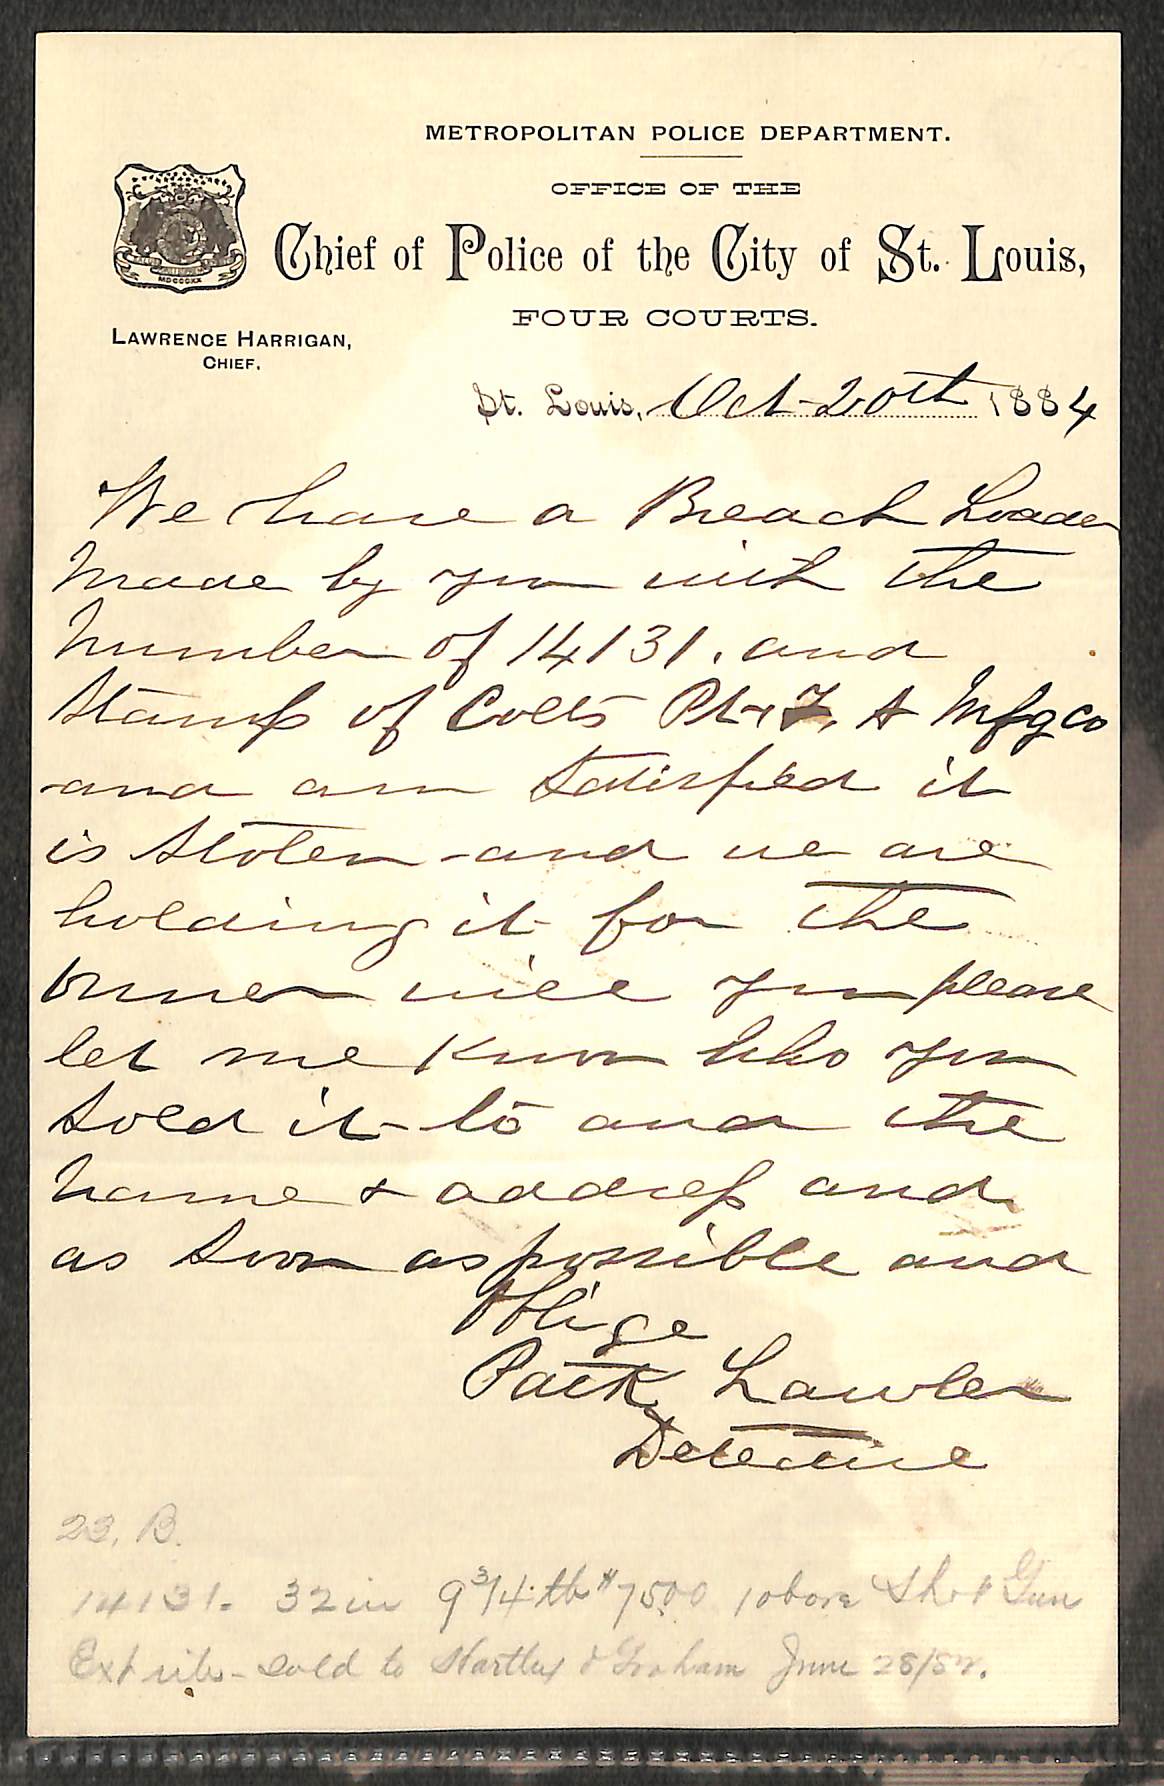 METROPOLITAN POLICE DEPARTMENT.
OFFICE OF THE
Chief of Police of the City of St. Louis,
FOUR COURTS.
MDCCCXX
LAWRENCE HARRIGAN,
CHIEF.
St. Louis, Oct 20th 1884
We have a Breach Loader
Made by you with the
Number of 14131. and
Stamp of Colts Pt. F. A Mfg Co
and am Satisfied it
is Stolen and we are
holding it for the
owner will you please
let me Know Who you
Sold it to and the
Name & address and
as Soon as possible and
Oblige
Patk Lawler
Detective
23. B.
14131. 32 in 9 3/4 lb $75.00 10 bore Shot Gun
Ext rib - Sold to Hartley & Graham June 28/82.